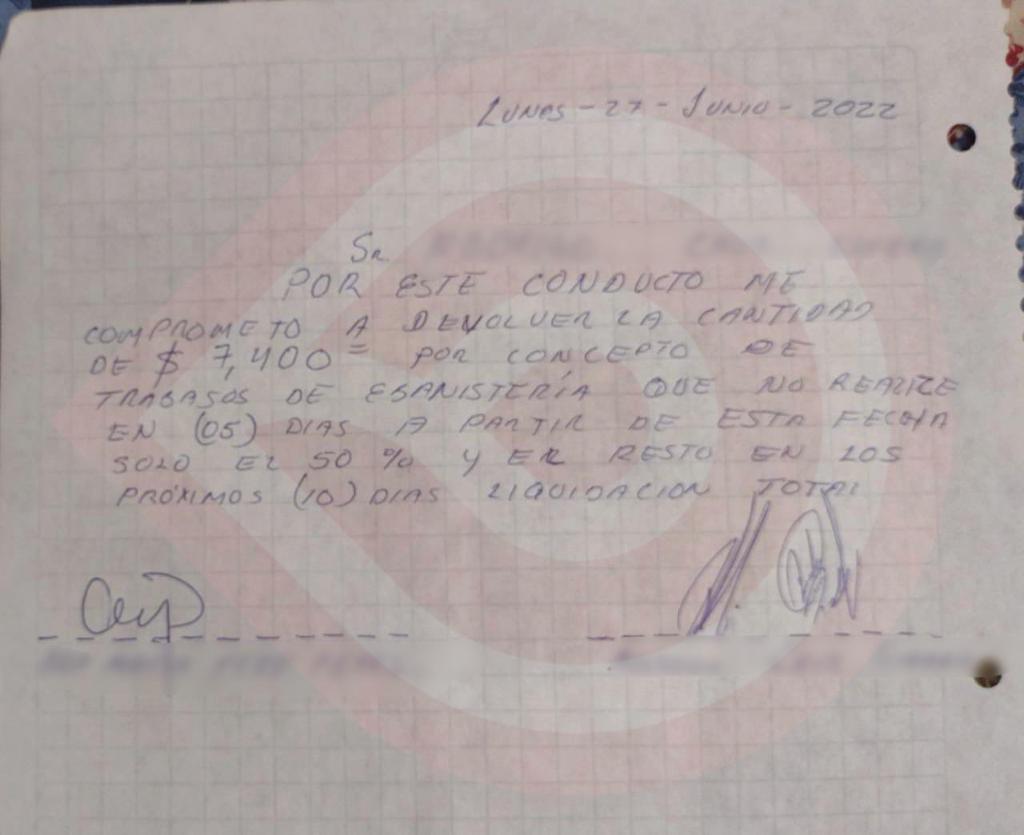 LUNES - 27 - JUNIO - 2022
Sr.
POR ESTE CONDUCTO ME
COMPROMETO A DEVOLVER LA CANTIDAD
DE $ 7,400= POR CONCEPTO DE
TRABAJOS DE EBANISTERÍA QUE NO REALICE
EN (05) DIAS A PARTIR DE ESTA FECHA
SOLO EL 50 % Y EL RESTO EN LOS
PRÓXIMOS (10) DIAS LIQUIDACION TOTAL